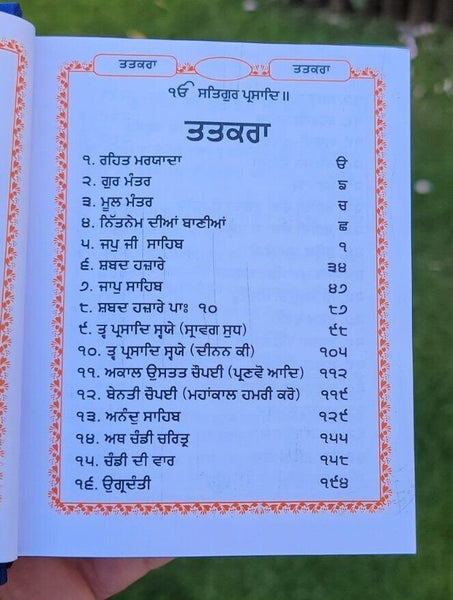 ਤਤਕਰਾ ਤਤਕਰਾ
ੴ ਸਤਿਗੁਰ ਪ੍ਰਸਾਦਿ॥
ਤਤਕਰਾ
੧. ਰਹਿਤ ਮਰਯਾਦਾ ੳ
੨. ਗੁਰ ਮੰਤਰ ਙ
੩. ਮੂਲ ਮੰਤਰ ਚ
੪. ਨਿੱਤਨੇਮ ਦੀਆਂ ਬਾਣੀਆਂ ਛ
੫. ਜਪੁ ਜੀ ਸਾਹਿਬ ੧
੬. ਸ਼ਬਦ ਹਜ਼ਾਰੇ ੩੪
੭. ਜਾਪੁ ਸਾਹਿਬ ੪੭
੮. ਸ਼ਬਦ ਹਜ਼ਾਰੇ ਪਾਃ ੧੦ ੮੭
੯. ਤ੍ਵ ਪ੍ਰਸਾਦਿ ਸ੍ਵਯੇ (ਸ੍ਰਾਵਗ ਸੁਧ) ੯੮
੧੦. ਤ੍ਵ ਪ੍ਰਸਾਦਿ ਸ੍ਵਯੇ (ਦੀਨਨ ਕੀ) ੧੦੫
੧੧. ਅਕਾਲ ਉਸਤਤ ਚੌਪਈ (ਪ੍ਰਣਵੋ ਆਦਿ) ੧੧੨
੧੨. ਬੇਨਤੀ ਚੌਪਈ (ਮਹਾਂਕਾਲ ਹਮਰੀ ਕਰੋ) ੧੧੯
੧੩. ਅਨੰਦੁ ਸਾਹਿਬ ੧੨੯
੧੪. ਅਥ ਚੰਡੀ ਚਰਿਤ੍ਰ ੧੫੫
੧੫. ਚੰਡੀ ਦੀ ਵਾਰ ੧੫੮
੧੬. ਉਗ੍ਰਦੰਤੀ ੧੯੪